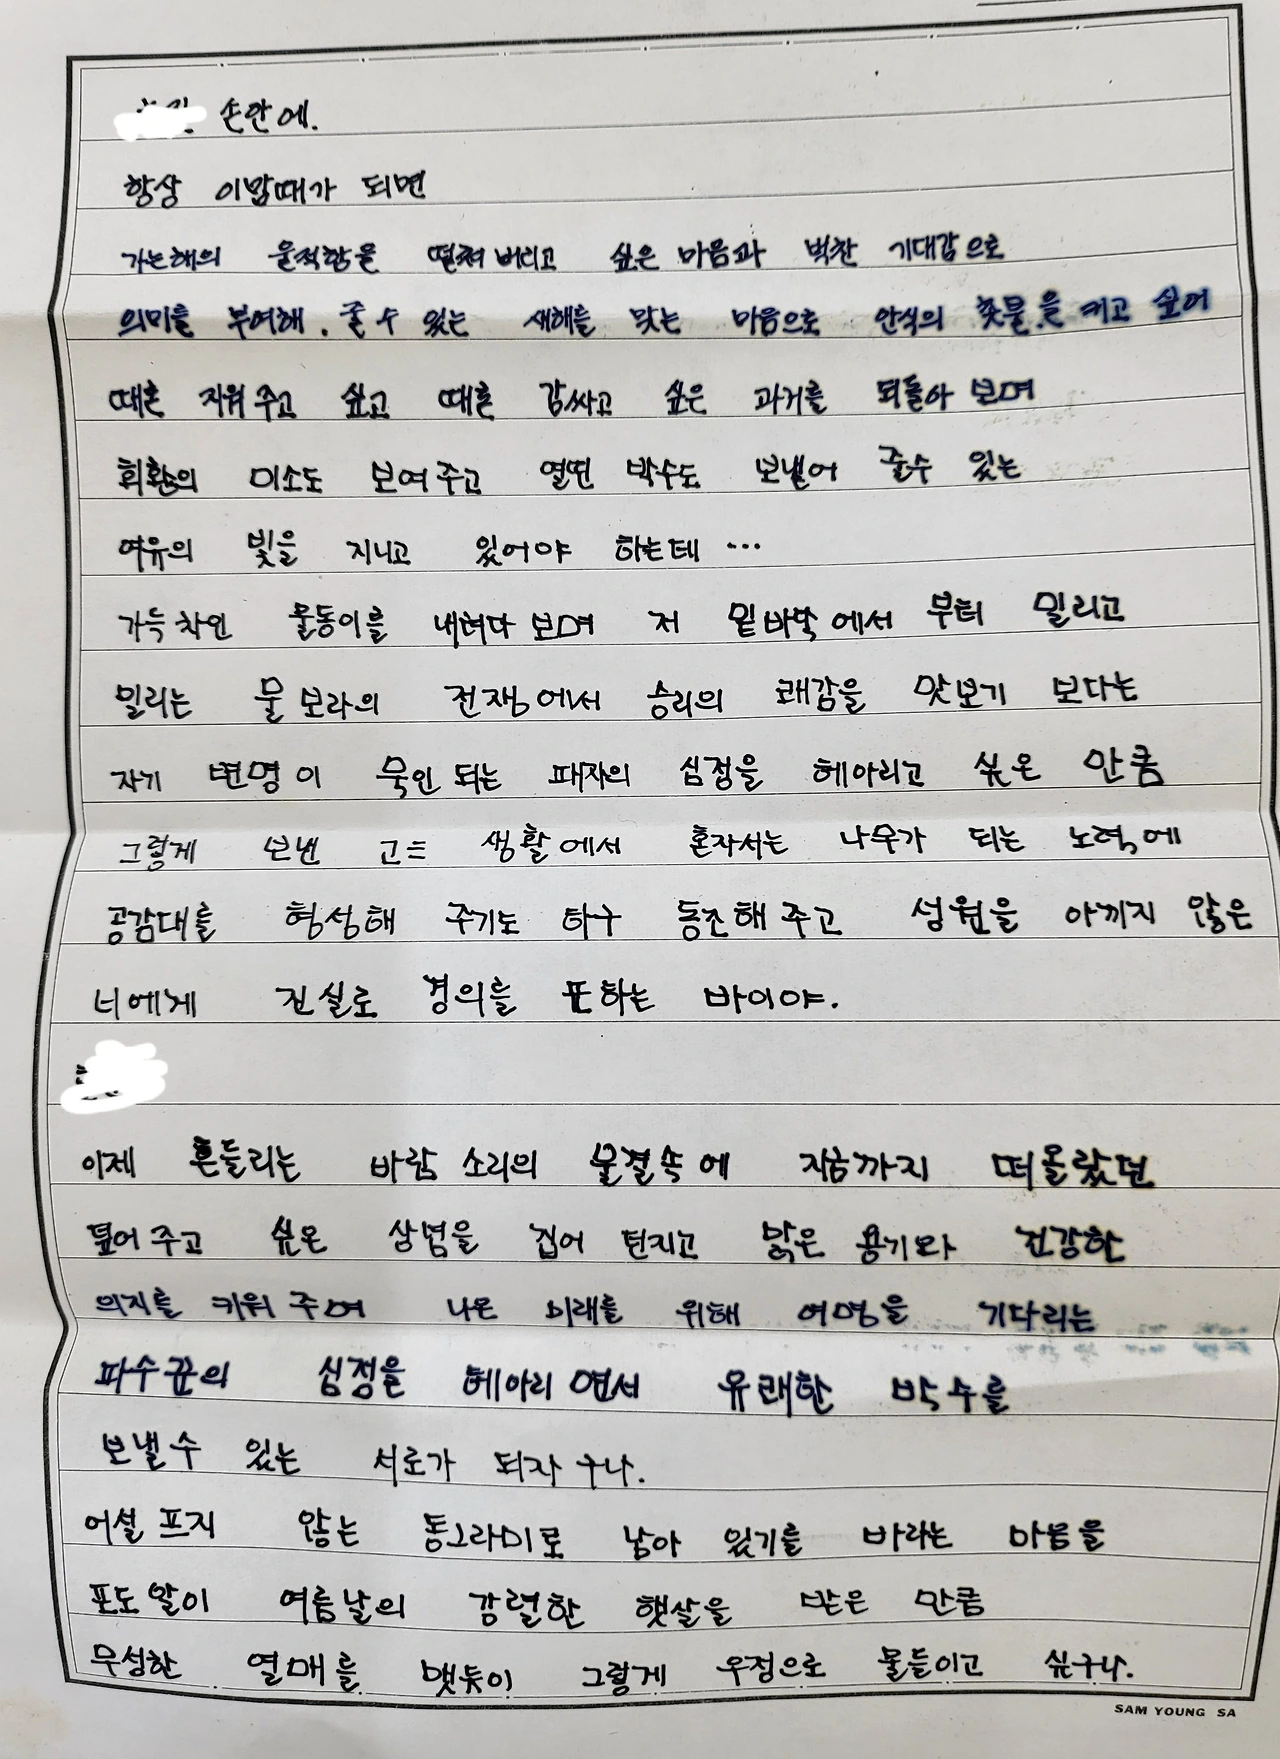 손안에.
항상 이맘때가 되면
가는해의 울적함을 떨쳐 버리고 싶은 마음과 벅찬 기대감으로
의미를 부여해. 줄 수 있는 새해를 맞는 마음으로 안식의 촛불.을 켜고 싶어
때론 지워 주고 싶고 때론 감싸고 싶은 과거를 되돌아 보며
회환의 미소도 보여 주고 열띤 박수도 보낼어 줄수 있는
여유의 빛을 지니고 있어야 하는데 ...
가득 차인 물동이를 내려다 보며 저 밑바닥에서 부터 밀리고
밀리는 물보라의 전쟁에서 승리의 쾌감을 맛보기 보다는
자기 변명이 묵인 되는 패자의 심정을 헤아리고 싶은 만큼
그렇게 보낸 고三 생활에서 혼자서는 나무가 되는 노력에
공감대를 형성해 주기도 하구 동조해 주고 성원을 아끼지 않은
너에게 진실로 경의를 표하는 바이야.
이제 흔들리는 바람 소리의 물결속에 지금까지 떠올랐던
덮어 주고 싶은 상념을 집어 던지고 맑은 용기와 건강한
의지를 키워 주며 나은 미래를 위해 여명을 기다리는
파수꾼의 심정을 헤아리면서 유쾌한 박수를
보낼수 있는 서로가 되자구나.
어설프지 않는 동그라미로 남아 있기를 바라는 마음을
포도알이 여름날의 강렬한 햇살을 받은 만큼
무성한 열매를 맺듯이 그렇게 우정으로 물들이고 싶구나.
SAM YOUNG SA